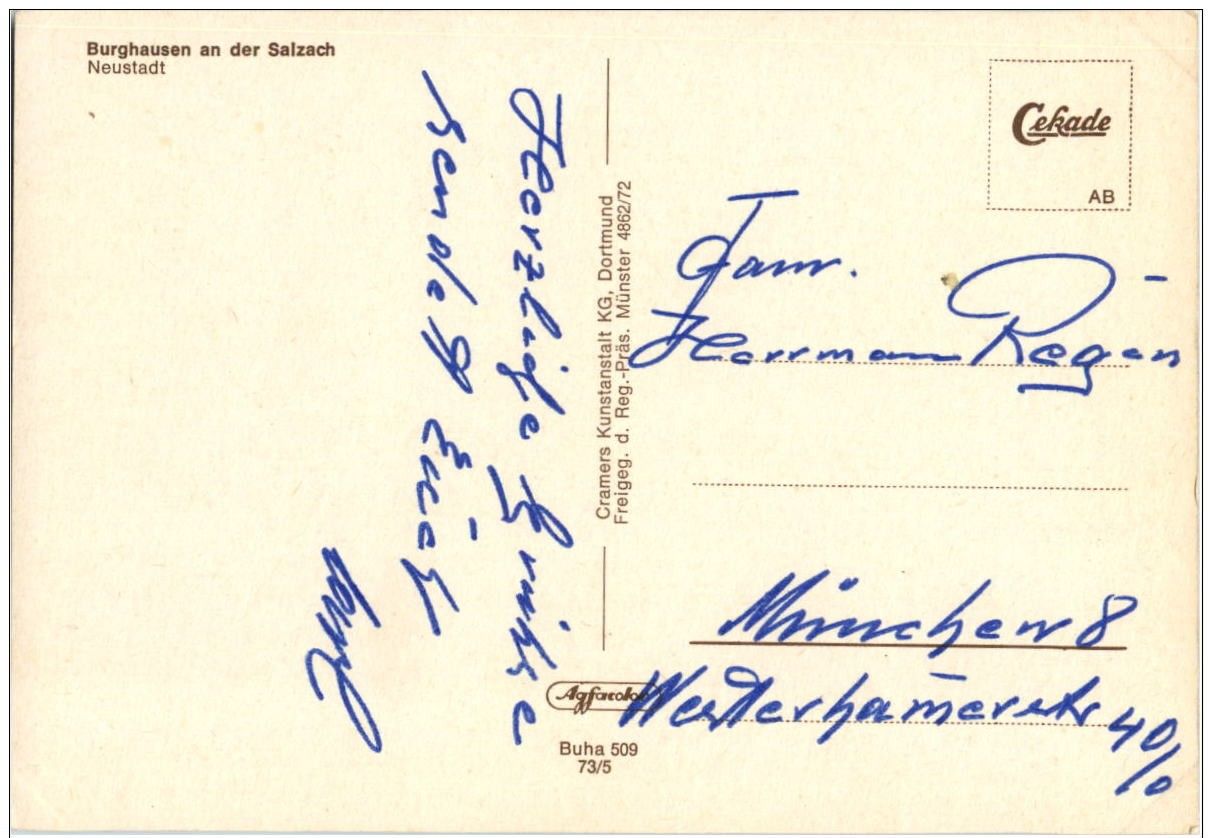 Burghausen an der Salzach
Neustadt
Herzliche Grüße
sendet Euch
Cramers Kunstanstalt KG, Dortmund
Freigeg. d. Reg.-Präs. Münster 4862/72
Cekade
AB
Fam.
Herrman Regen
München 8
Westerhamerstr 40/0
Agfacolor
Buha 509
73/5